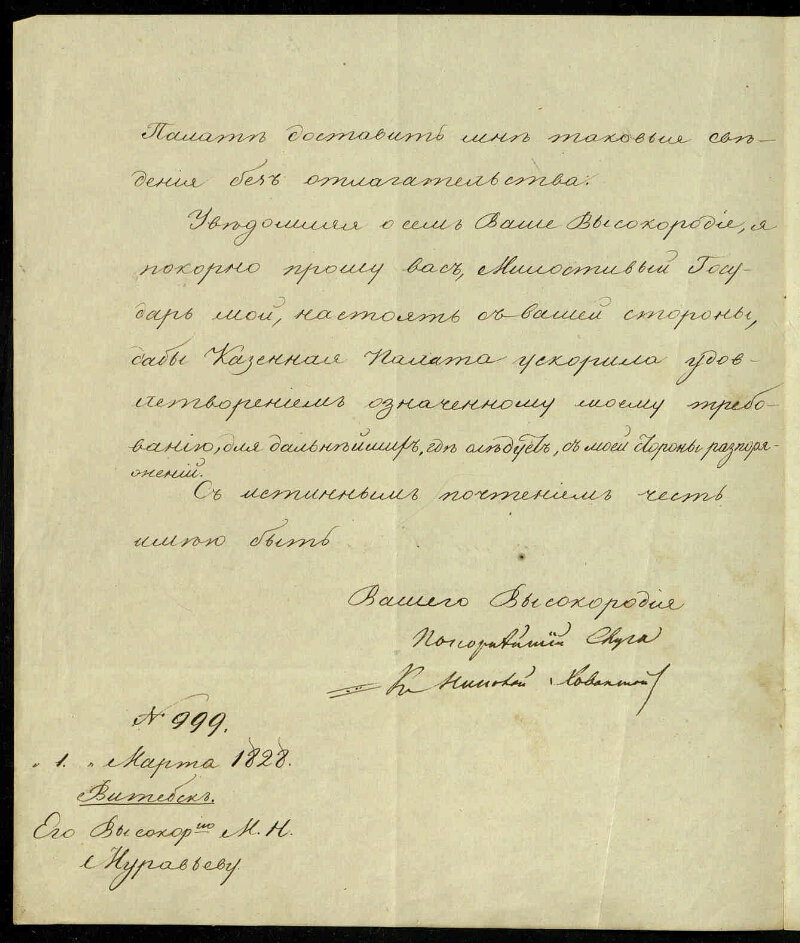 Палатѣ доставить мнѣ таковыя свѣ-
денія безъ отлагательства.
Увѣдомляя о семъ Ваше Высокородіе, я
покорно прошу васъ, Милостивый Госу-
дарь мой, настоять съ вашей стороны,
дабы Казенная Палата ускорила удов-
летвореніемъ означенному моему требо-
ванію, для дальнѣйшихъ, гдѣ слѣдуетъ, съ моей стороны распоря-
женій.
Съ истиннымъ почтеніемъ честь
имѣю быть
Вашего Высокородія
Покорнѣйшій Слуга
Кн Николай Хованской
№ 999.
„ 1. „ Марта 1828.
Витебскъ.
Его Высокорⁱю М. Н.
Муравьеву